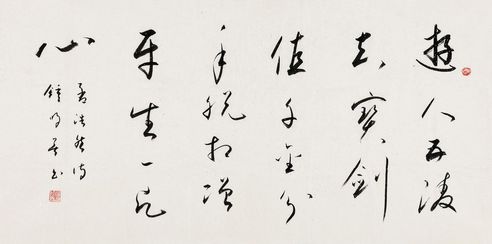 遊人五陵
去寶劍
值千金分
手脱相贈
平生一片
心
孟浩然詩
鍾明善書